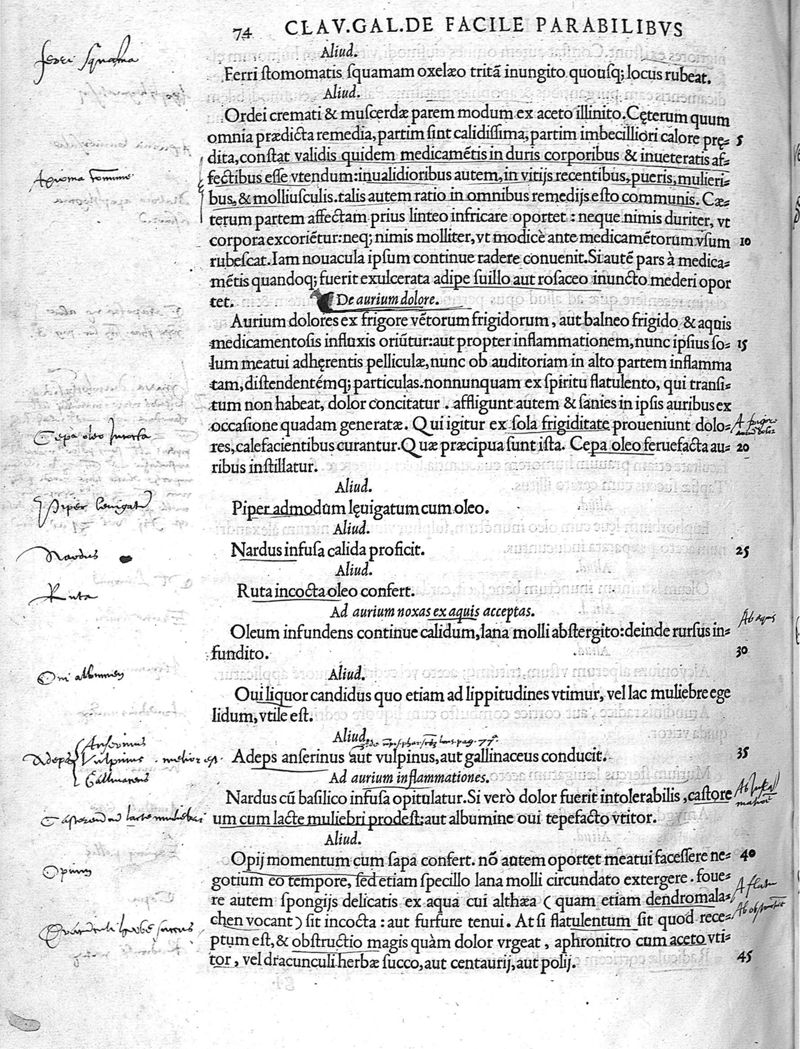 74 CLAV. GAL. DE FACILE PARABILIBVS
Aliud.
Ferri squama
Ferri ſtomomatis ſquamam oxelæo tritã inungito quouſq; locus rubeat.
Aliud.
Ordei cremati & muſcerdæ parem modum ex aceto illinito. Cęterum quum
omnia prædicta remedia, partim ſint calidiſſima, partim imbecilliori calore prę- 5
dita, conſtat validis quidem medicamẽtis in duris corporibus & inueteratis af-
fectibus eſſe vtendum: inualidioribus autem, in vitijs recentibus, pueris, mulieri-
bus, & molliuſculis. talis autem ratio in omnibus remedijs eſto communis. Cæ-
terum partem affectam prius linteo infricare oportet: neque nimis duriter, vt
corpora excoriẽtur: neq; nimis molliter, vt modicè ante medicamẽtorum vſum 10
rubeſcat. Iam nouacula ipſum continue radere conuenit. Si autẽ pars à medica-
mẽtis quandoq; fuerit exulcerata adipe ſuillo aut roſaceo inuncto mederi opor
tet. De aurium dolore.
Aurium dolores ex frigore vẽtorum frigidorum, aut balneo frigido & aquis
medicamentoſis influxis oriũtur: aut propter inflammationem, nunc ipſius ſo- 15
lum meatui adhęrentis pelliculæ, nunc ob auditoriam in alto partem inflamma
tam, diſtendentémq; particulas. nonnunquam ex ſpiritu flatulento, qui tranſi-
tum non habeat, dolor concitatur. affligunt autem & ſanies in ipſis auribus ex
occaſione quadam generatæ. Qui igitur ex ſola frigiditate proueniunt dolo-
res, calefacientibus curantur. Quæ præcipua ſunt iſta. Cepa oleo feruefacta au- 20
ribus inſtillatur.
Aliud.
Piper admodum lęuigatum cum oleo.
Aliud.
Nardus
Nardus infuſa calida proficit. 25
Aliud.
Ruta
Ruta incocta oleo confert.
Ad aurium noxas ex aquis acceptas.
Ab aquis
Oleum infundens continue calidum, lana molli abſtergito: deinde rurſus in-
fundito. 30
Aliud.
Oui albumen
Oui liquor candidus quo etiam ad lippitudines vtimur, vel lac muliebre ege
lidum, vtile eſt.
Aliud.
Adeps Anserinus Vulpinus Gallinaceus
Adeps anſerinus aut vulpinus, aut gallinaceus conducit. 35
Ad aurium inflammationes.
Nardus cũ baſilico infuſa opitulatur. Si verò dolor fuerit intolerabilis, caſtore
um cum lacte muliebri prodeſt: aut albumine oui tepefacto vtitor.
Aliud.
Opium
Opij momentum cum ſapa confert. nõ autem oportet meatui faceſſere ne- 40
gotium eo tempore, ſed etiam ſpecillo lana molli circundato extergere. foue-
re autem ſpongijs delicatis ex aqua cui althæa (quam etiam dendromala-
chen vocant) ſit incocta: aut furfure tenui. At ſi flatulentum ſit quod rece-
ptum eſt, & obſtructio magis quàm dolor vrgeat, aphronitro cum aceto vti-
tor, vel dracunculi herbæ ſucco, aut centaurij, aut polij. 45